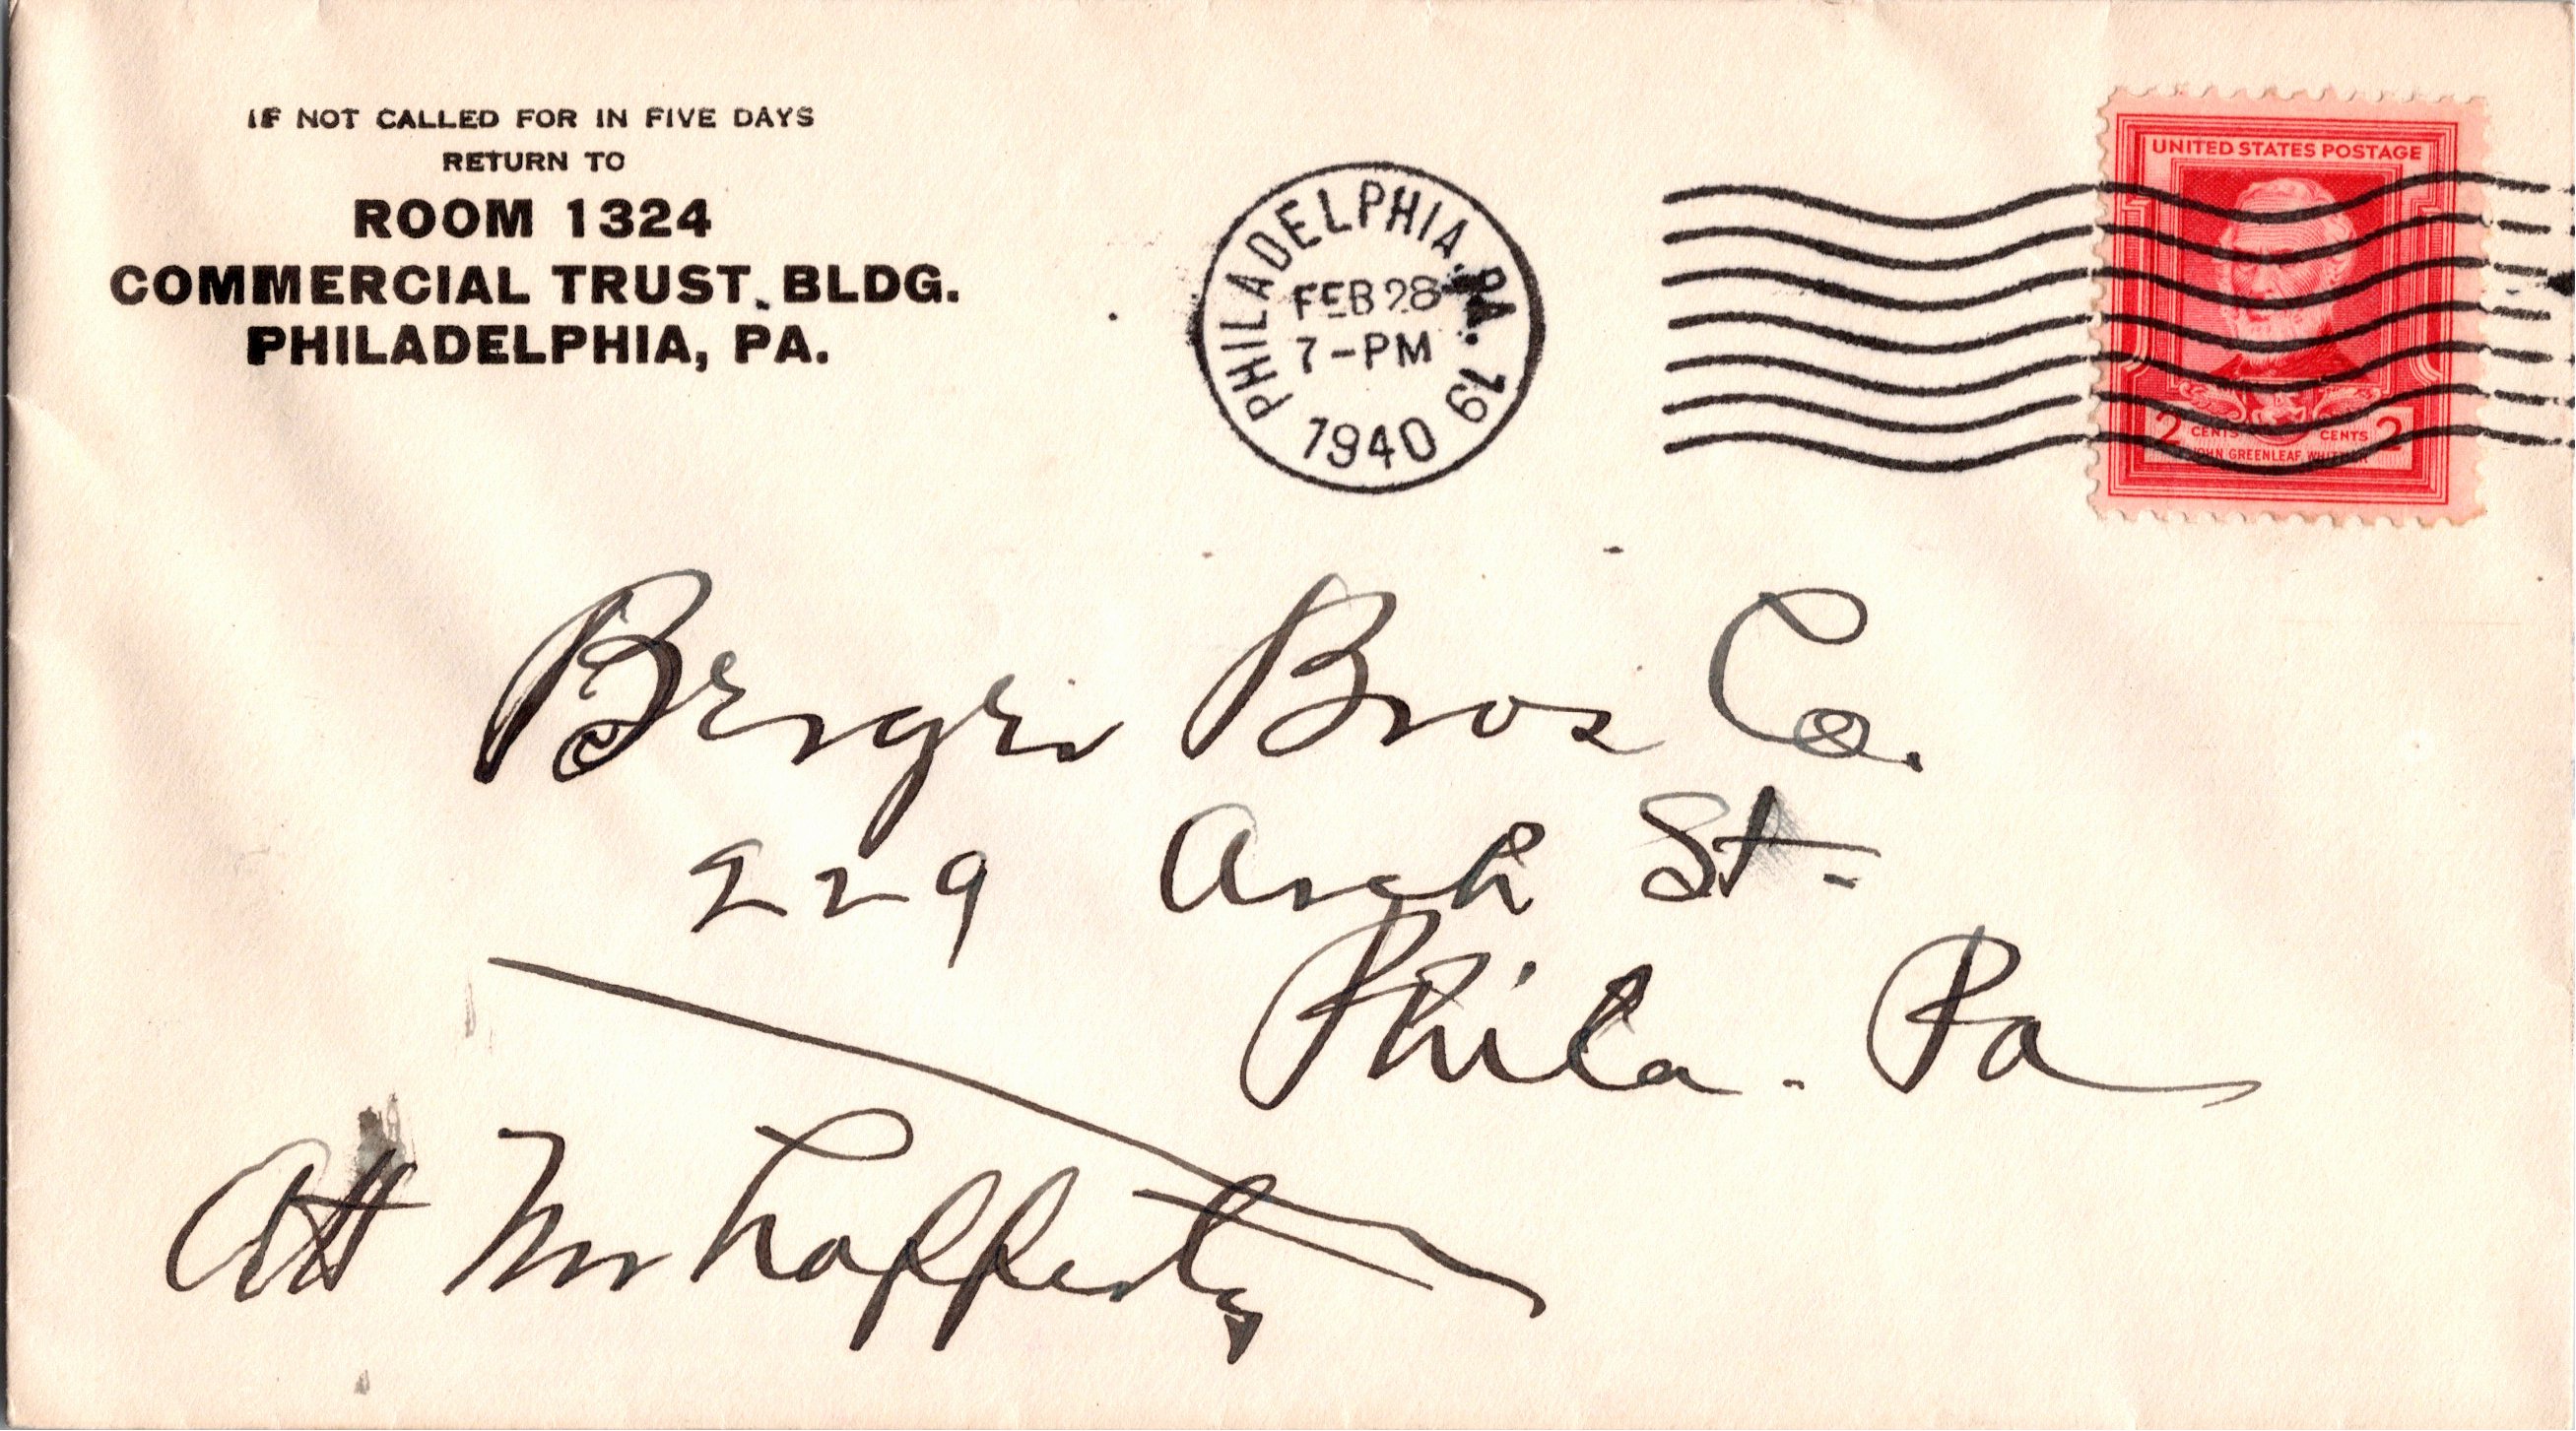 IF NOT CALLED FOR IN FIVE DAYS
RETURN TO
ROOM 1324
COMMERCIAL TRUST. BLDG.
PHILADELPHIA, PA.
PHILADELPHIA. PA. 19
FEB 28
7-PM
1940
UNITED STATES POSTAGE
2 CENTS CENTS 2
JOHN GREENLEAF WHITTIER
Berger Bros Co.
229 Arch St=
Phila. Pa
Att Mr Lafferty